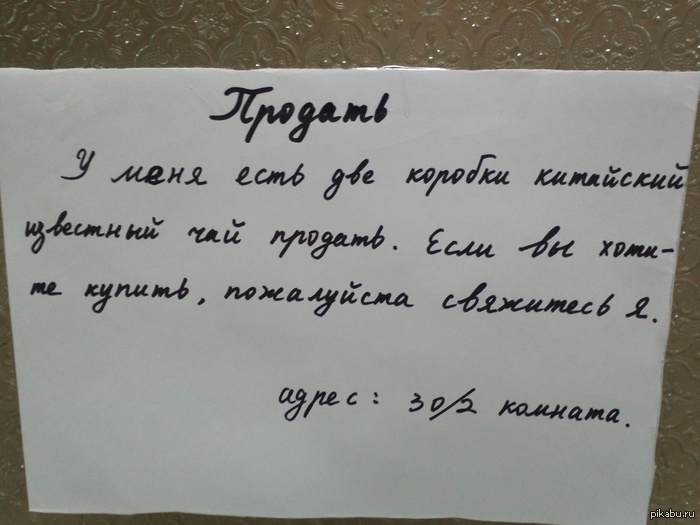 Продать
У меня есть две коробки китайский
известный чай продать. Если вы хоти-
те купить, пожалуйста свяжитесь я.
адрес: 30/2 комната.
pikabu.ru